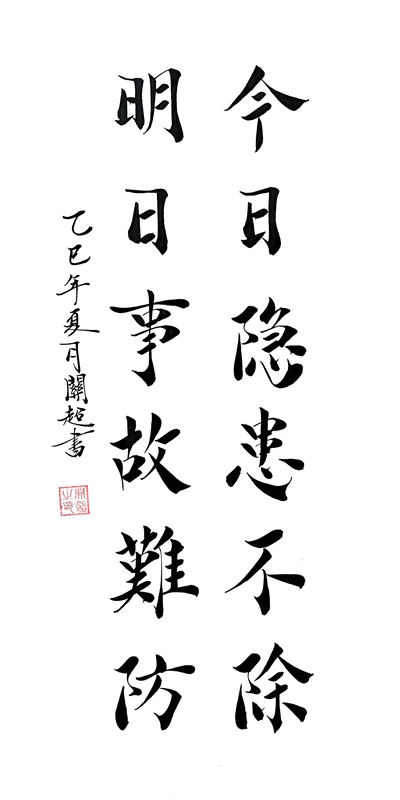 今日隐患不除
明日事故難防
乙巳年夏月關超書